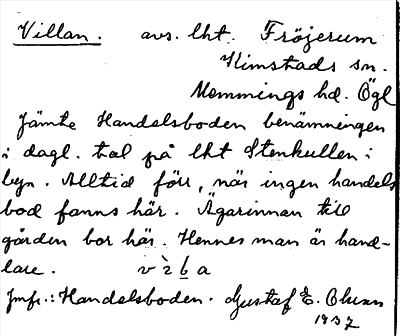 Villan. avs. lht. Fröjerum
Kimstads sn.
Memmings hd. Ögl
Jämte Handelsboden benämningen
i dagl. tal på lht Stenkullen i
byn. Alltid förr, när ingen handels
bod fanns här. Ägarinnan till
gården bor här. Hennes man är hand-
lare. v ̀ı b a
Jmfr.: Handelsboden. Gustaf E.
1937